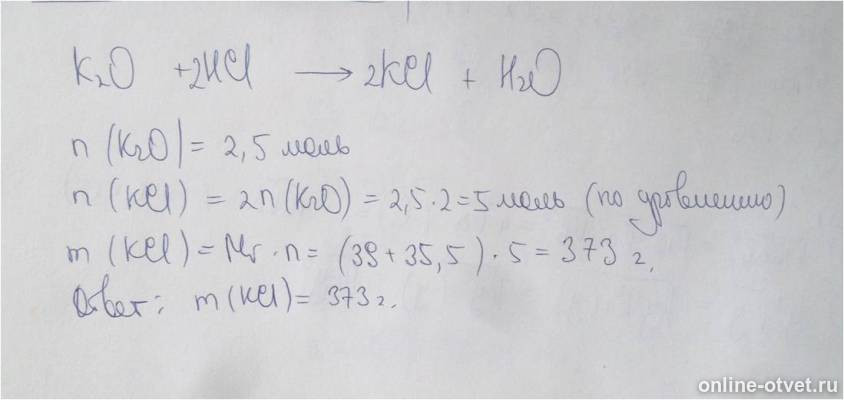 K₂O + 2HCl → 2KCl + H₂O
n (K₂O) = 2,5 моль
n (KCl) = 2n (K₂O) = 2,5 · 2 = 5 моль (по уровнению)
m (KCl) = Mr · n = (39 + 35,5) · 5 = 373 г.
Ответ: m (KCl) = 373 г.
online-otvet.ru